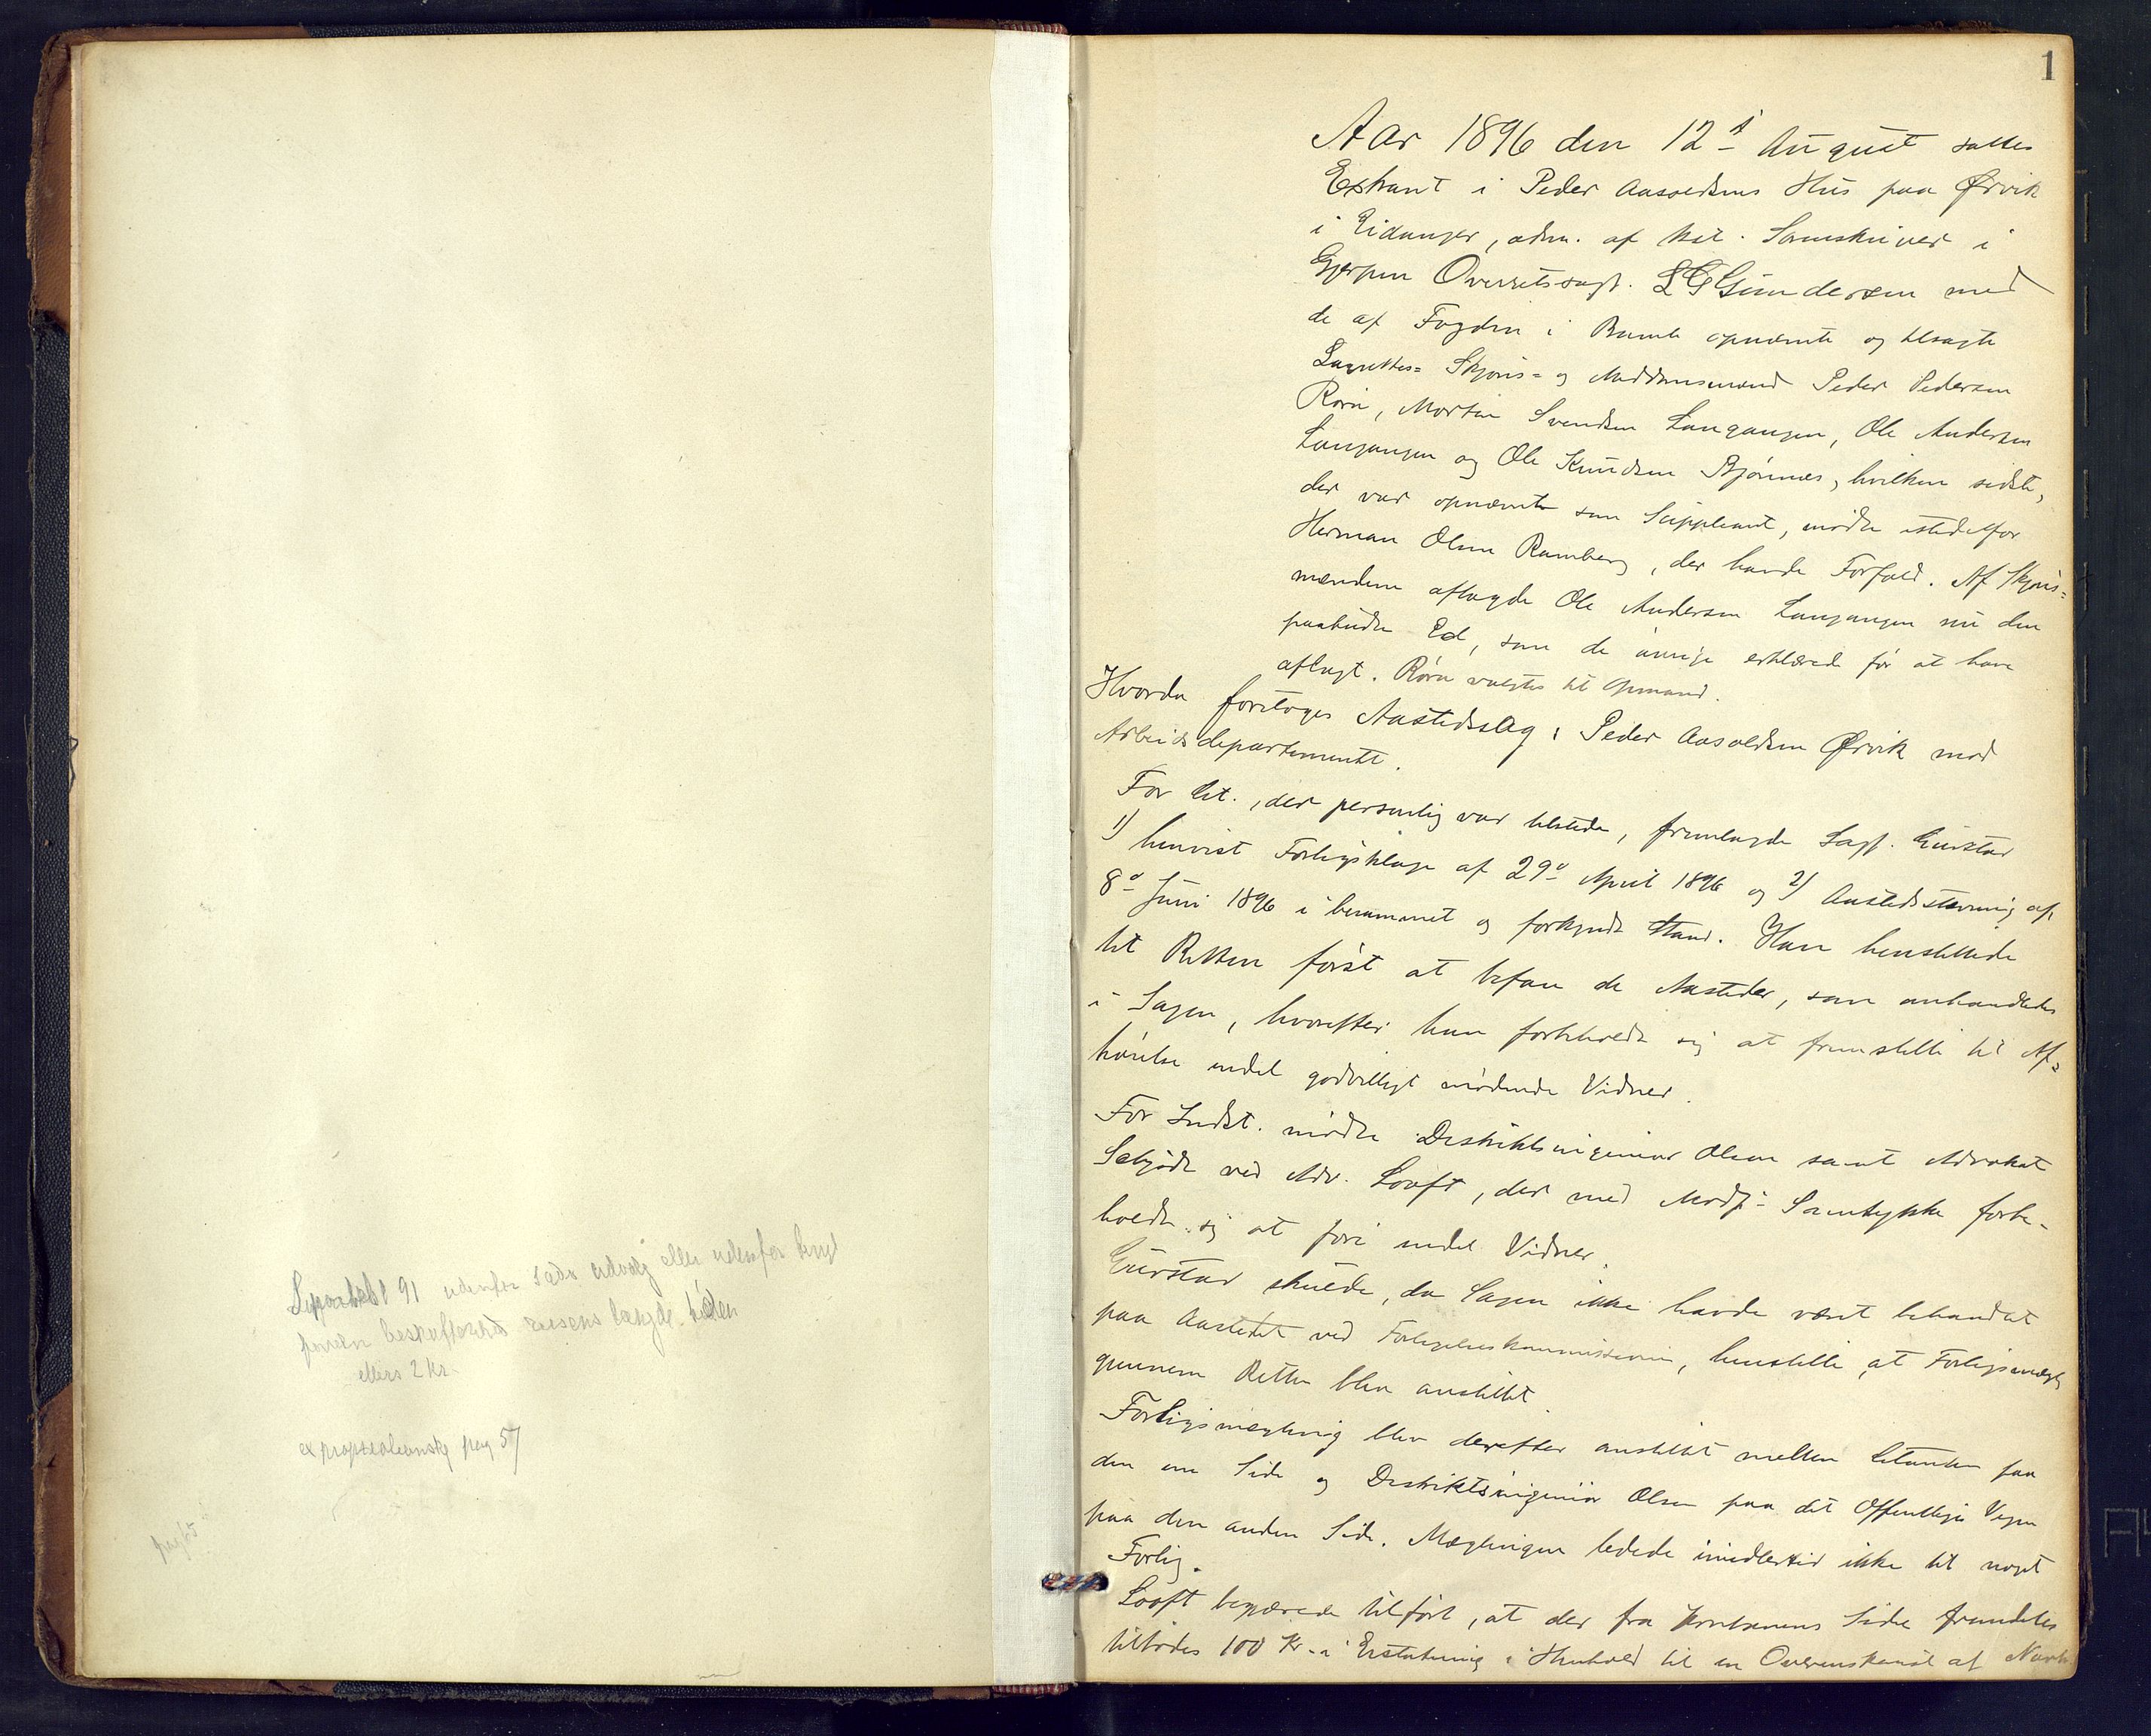 udenfor eller udenfor
reisens længde
ellers 2 kr
pag 57
pag 65
1
Aar 1896 den 12te August sattes
Extraret i Peder Aasoldsens Hus paa Ørvik
i Eidanger, adm. af kst. Sorenskriver i
Gjerpen Overretssagf. L G Gundersen med
de af Fogden i Bamle opnævnte og tilsagte
Lagrettes= Skjøns= og Meddomsmænd Peder Pedersen
Røra, Morten Svendsen Langangen, Ole Andersen
Langangen og Ole Knudsen Bjønnes, hvilken sidste,
der var opnævnt som Suppleant, mødte istedetfor
Herman Olsen Ramberg, der havde Forfald. Af Skjøns=
mændene aflagde Ole Andersen Langangen nu den
paabudte Ed, som de øvrige erklærede før at have
aflagt. Røra valgtes til Opmand.
Hvorda foretoges Aastedssag: Peder Aasoldsen Ørvik mod
Arbeidsdepartementet.
For Cit., der personlig var tilstede, fremlagde Sagf.
1) henvist Forligsklage af 29de April 1896 og 2) Aastedsstevning af
8de Juni 1896 i berammet og forkyndt Stand. Han henstillede
til Retten først at befare de Aasteder, som omhandledes
i Sagen, hvorefter han forbeholdt sig at fremstille til Af=
hørelse endel godvilligt mødende Vidner.
For Indst. mødte Distriktsingeniør Olsen samt Advokat
ved Adv. Looft, der med Modp.s Samtykke forbe-
holdt sig at føre endel Vidner.
skulde, da Sagen ikke havde været behandlet
paa Aastedet ved Forligelseskommissionen, henstille, at Forligsmægling
gjennem Retten blev anstillet.
Forligsmægling blev derefter anstillet mellem Citanten paa
den ene Side og Distriktsingeniør Olsen paa det Offentliges Vegne
paa den anden Side. Mæglingen ledede imidlertid ikke til noget
Forlig.
Looft begjærede tilført, at der fra Side fremdeles
tilbødes 100 Kr. i Erstatning i Henhold til en Overenskomst af